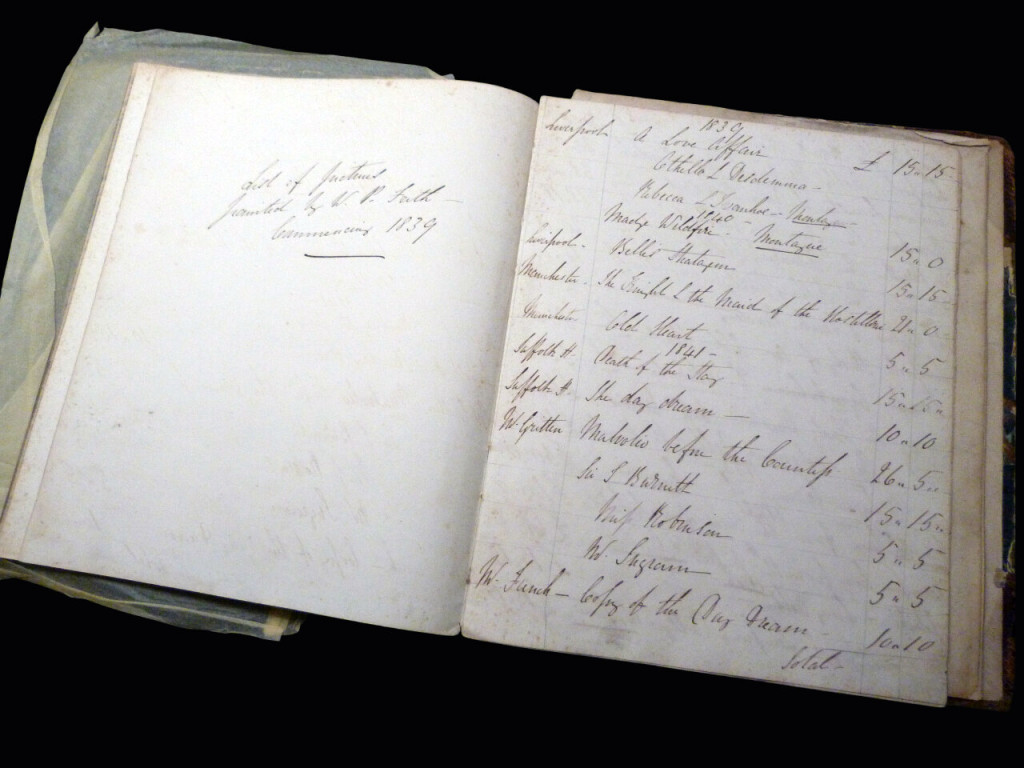 List of pictures
painted by W. P. Frith
Commencing 1839
1839
Liverpool A Love Affair £ 15 " 15
Othello & Desdemona -
Rebecca & Ivanhoe -
1840 -
Madge Wildfire. Montague 15 " 0
Liverpool - Belles Stratagem 15 " 15
Manchester. The Knight & the Maid of the 21 " 0
Manchester Cold Heart 5 " 5
1841 -
Suffolk St. Death of the Stag 15 " 15 "
Suffolk St. The day dream — 10 " 10
Mr. Gritten Malvolio before the Countess 26 " 5 "
Sir S 15 " 15 "
Miss Robinson 5 " 5
Mr Ingram 5 " 5
Mr. — Copy of the Day Dream - 10 " 10
Total -